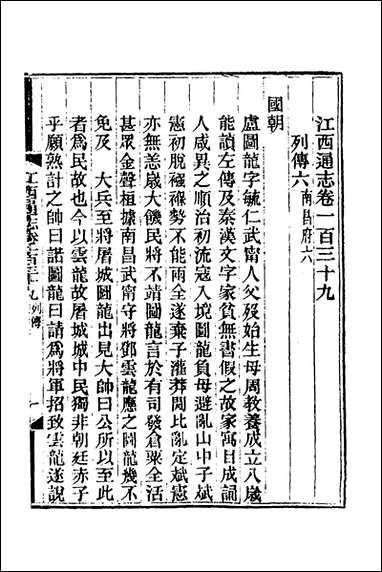 江西通志卷一百三十九
列傳六南昌府六
國朝
盧圖龍字毓仁武甯人父歿始生母周教養成立八歲
能讀左傳及秦漢文字家貧無書假之故家寓目成誦
人咸異之順治初流寇入境圖龍負母避亂山中子斌
憲初脫襁褓勢不能兩全遂棄子灌莽間比亂定斌憲
亦無恙歲大饑民將不靖圖龍言於有司發倉粟全活
甚眾金聲桓據南昌武甯守將鄧雲龍應之圖龍幾不
免及　大兵至將屠城圖龍出見大帥曰公所以至此
者爲民故也今以雲龍故屠城城中民獨非朝廷赤子
乎願熟計之帥曰諾圖龍曰請爲將軍招致雲龍遂說
江西通志卷一百三十九 列傳 一